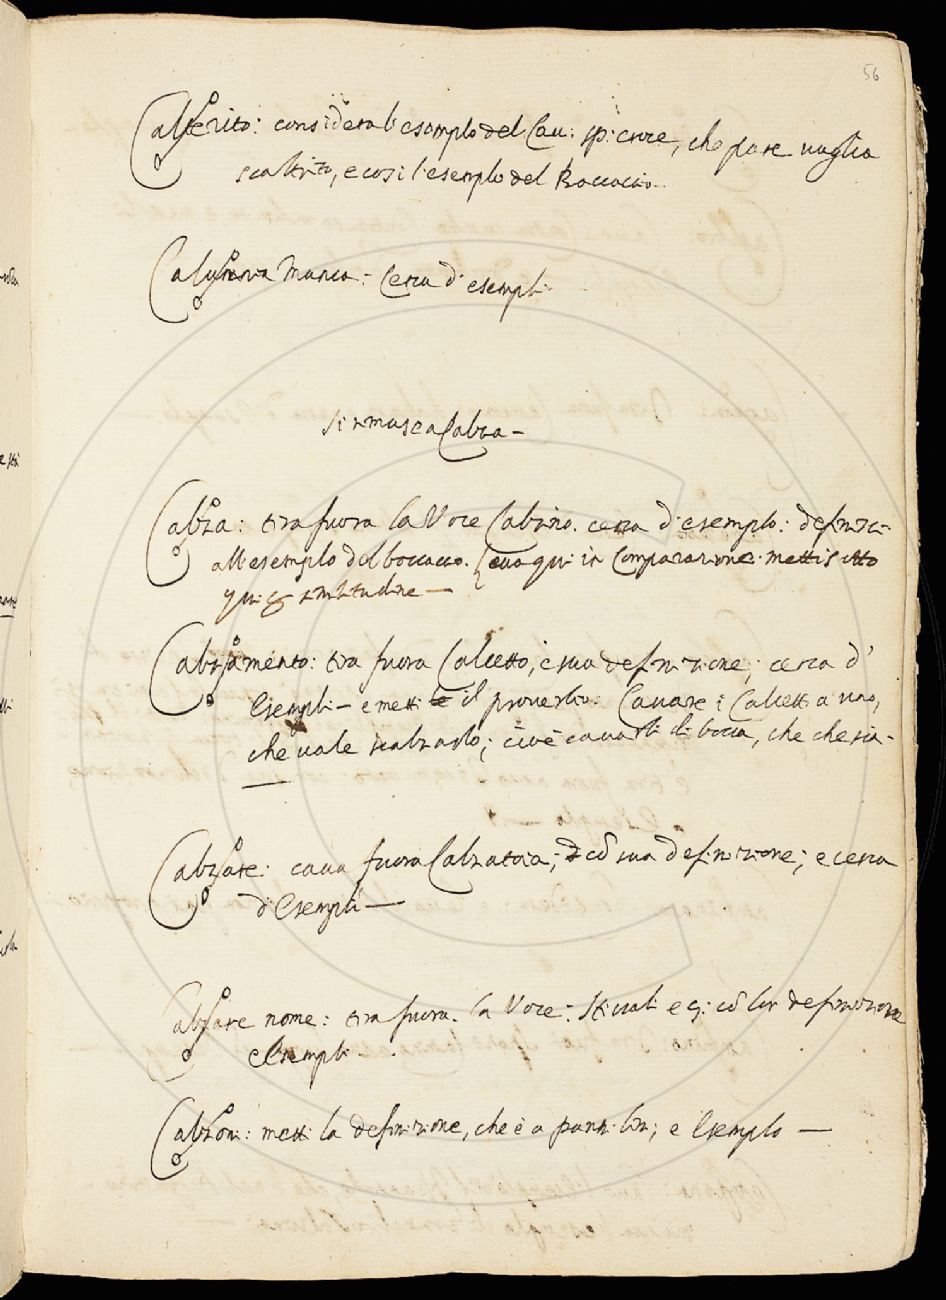 56
Calterito: considera l'esemplo del Cau: sp: croce, che pare uaglia
scaltrito, e cosi l'esemplo del Boccaccio.
manca: Cerca d'esempli
si rimase a Calza –
Calza: tira fuora la Voce Calzino. cerca d'esemplo: definisci
all'esemplo del boccaccio. Leua qui in Comparazione. metti sotto
qui similitudine —
Calzamento: tira fuora Calcetto, e sua definizione; cerca d'
Esempli – e metti il prouerbio. Cauare i Calcetti a uno,
che uale scalzarlo; cioè cauarli di bocca, che che sia –
Calzare: caua fuora Calzatoia; cō sua definizione; e cerca
d'Esempli —
Calzare nome: tira fuora la Voce: Stiuali cō lor definizione
e Esempli
Calzoni: metti la definizione, che è a pann. lin; e Esemplo —